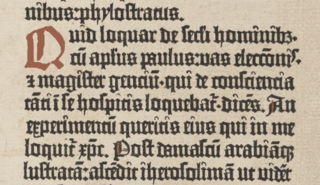 nibus: phylostratus.
Quid loquar de secli hominibꝫ.
cū aplus paulus: vas elecconis.
⁊ magister genciū. qui de consciencia
tāti ī se hospitis loquebat̄. dicēs. An
experimentū queritis eius qui in me
loquit̄ xp̄c. Post damascū arabiāqꝫ
lustratā: ascēdit iherosolimā ut videt̄